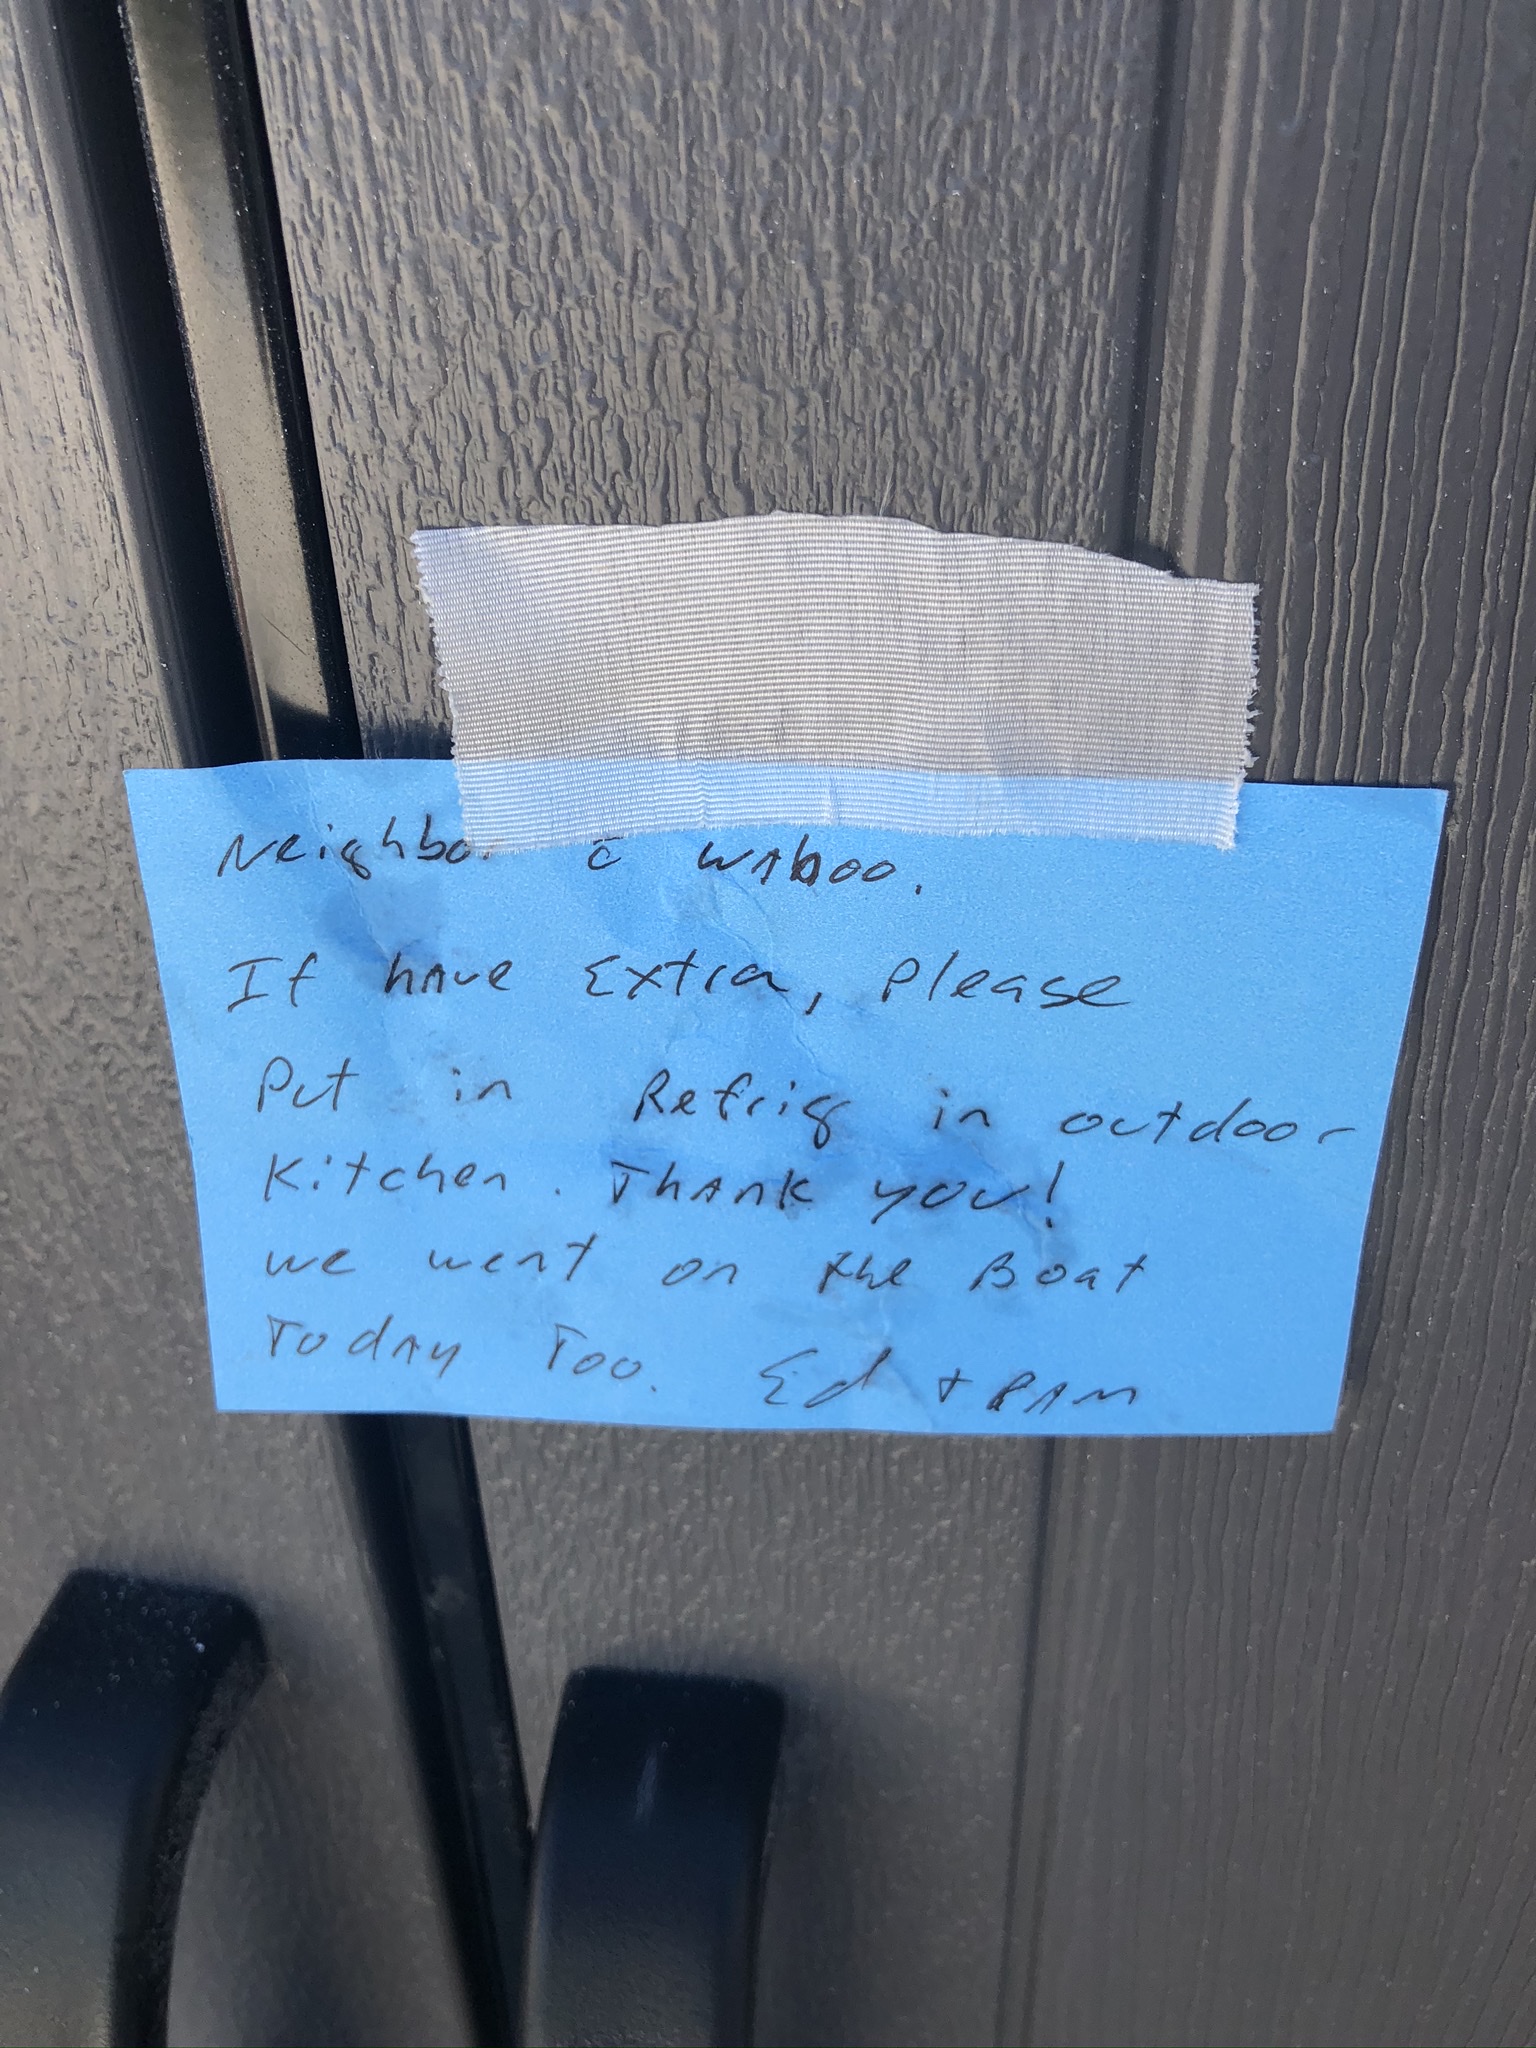 Neighbor c̄ wahoo.
If have Extra, please
Put in Refrig in outdoor
Kitchen. Thank you!
we went on the Boat
Today Too. Ed + Pam